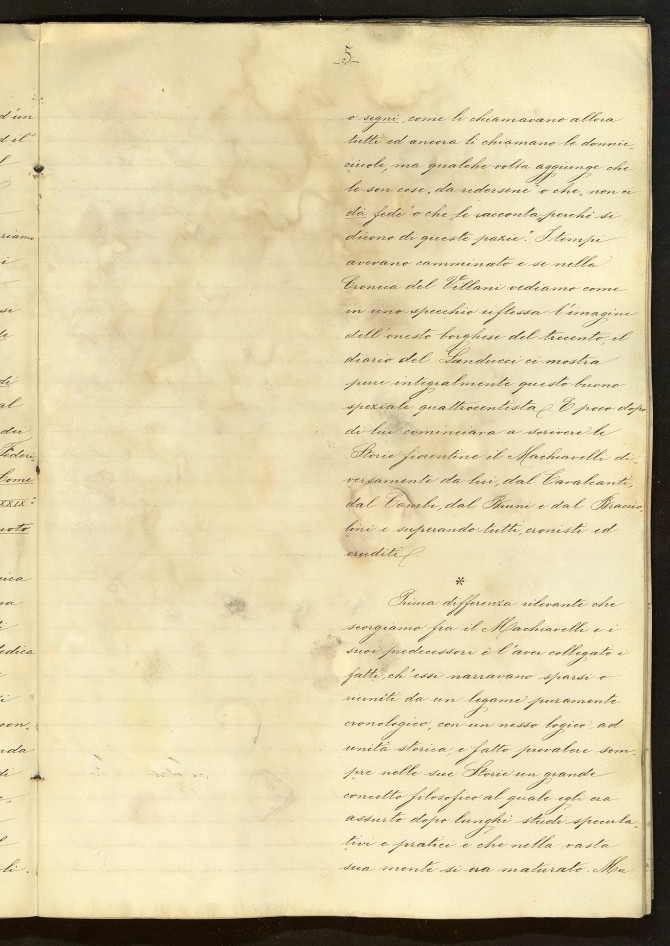 5
o segni, come li chiamavano allora
tutti ed ancora li chiamano le donnic-
ciuole, ma qualche volta aggiunge che
le son cose „da ridersene" o che „non ci
dà fede" o che le racconta „perchè si
dicono di queste pazie". I tempi
avevano camminato e se nella
Cronica del Villani vediamo come
in uno specchio riflessa l'imagine
dell'onesto borghese del trecento, il
diario del Landucci ci mostra
pure integralmente questo buono
speziale quattrocentista. E poco dopo
di lui cominciava a scrivere le
Storie fiorentine il Machiavelli di-
versamente da lui, dal Cavalcanti,
dal Cambi, dal Bruni e dal Braccio-
lini e superando tutti, cronisti ed
eruditi.
*
Prima differenza rilevante che
scorgiamo fra il Machiavelli e i
suoi predecessori è l'aver collegato i
fatti, ch'essi narravano sparsi o
riuniti da un legame puramente
cronologico, con un nesso logico, ad
unità storica, e fatto prevalere sem-
pre nelle sue Storie un grande
concetto filosofico al quale egli era
assurto dopo lunghi studi specula-
tivi e pratici e che nella vasta
sua mente si era maturato. Ma
d'un
riamo
si
di
al
dei
Federi-
Come
XXIX:
edica
con-
nda
li.